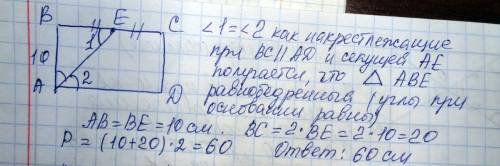 B E C
1
10
2
A D
∠1=∠2 как накрестлежащие
при BC∥AD и секущей AE
получается, что △ ABE
равнобедренный (углы при
основании равны)
AB=BE=10 см. BC=2·BE=2·10=20
P=(10+20)·2=60 Ответ: 60 см